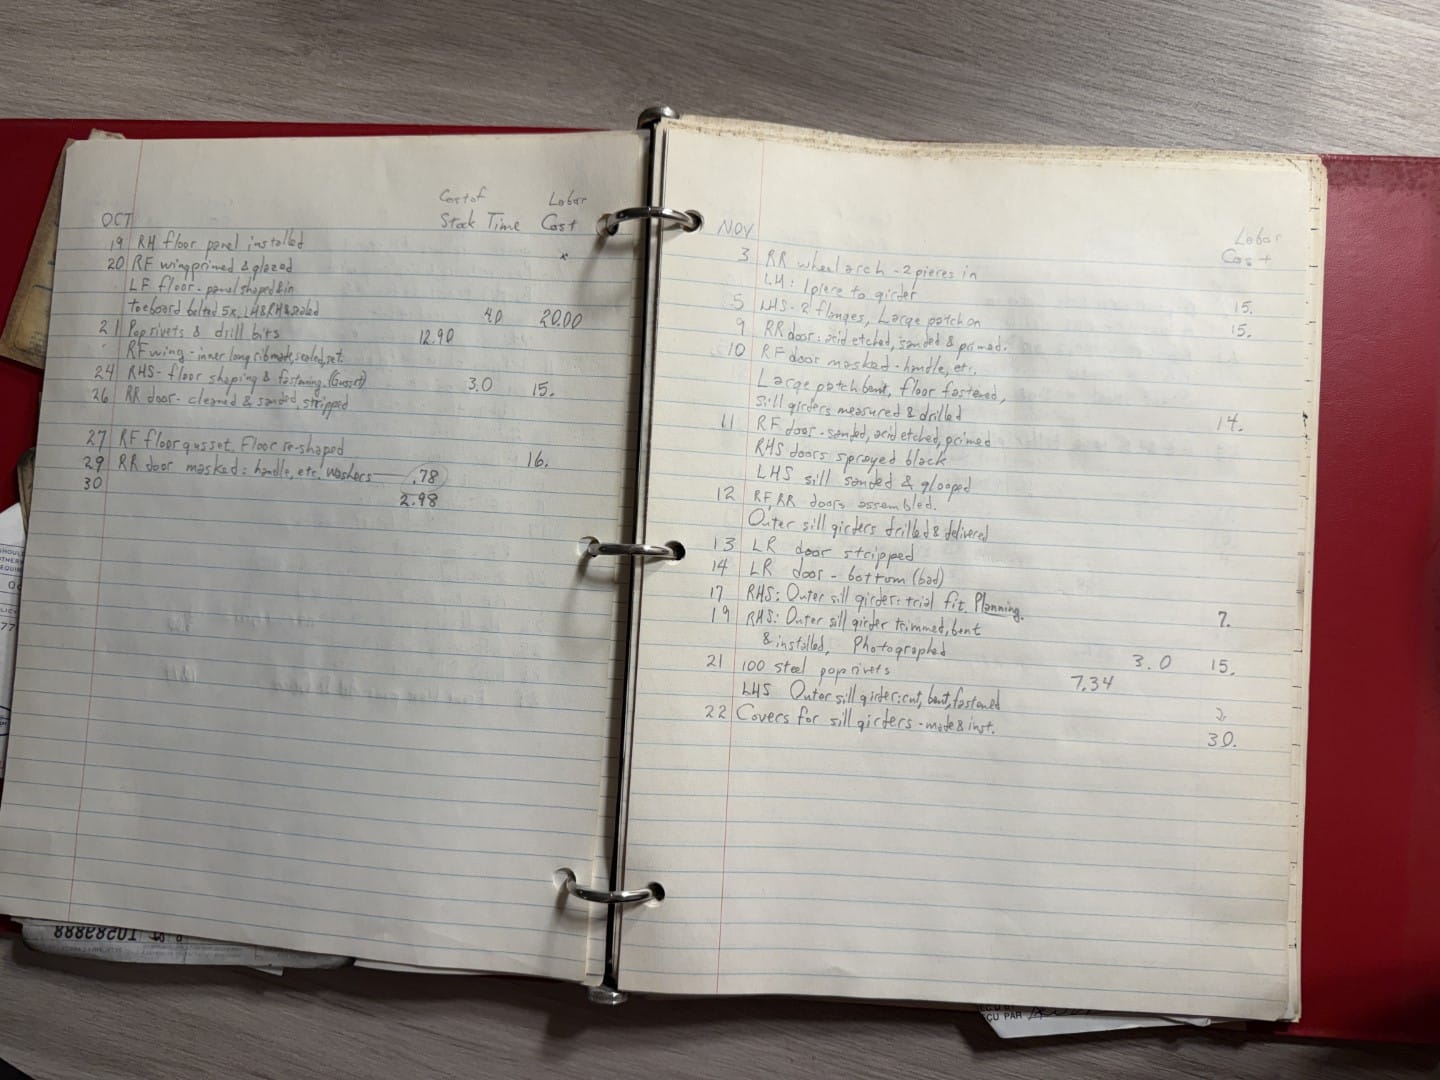 Cost of Labor
OCT Stock Time Cost
19 RH floor panel installed
20 RF wing primed & glazed
LF floor - panel shaped & in
toeboard bolted 5x, LH & RH sealed 40 20.00
21 Pop rivets & drill bits 12.90
RF wing - inner long rib made, sealed, set
24 RHS - floor shaping & fastening. (Gusset) 3.0 15.
26 RR door - cleaned & sanded, stripped
27 RF floor gusset. Floor re-shaped 16.
29 RR door masked: handle, etc. Washers .78
30 2.98
NOV Labor
Cost
3 RR wheel arch - 2 pieces in
LH: 1 piece to girder 15.
5 LHS - 2 flanges, Large patch on 15.
9 RR door: acid etched, sanded & primed.
10 RF door masked - handle, etc.
Large patch bent, floor fastened,
sill girders measured & drilled 14.
11 RF door - sanded, acid etched, primed
RHS doors sprayed black
LHS sill sanded & glooped
12 RF, RR doors assembled.
Outer sill girders drilled & delivered
13 LR door stripped
14 LR door - bottom (bad)
17 RHS: Outer sill girder: trial fit. Planning. 7.
19 RHS: Outer sill girder trimmed, bent
& installed, Photographed 3.0 15.
21 100 steel pop rivets 7.34
LHS Outer sill girder: cut, bent, fastened 2
22 Covers for sill girders - made & inst. 30.
SHOUL
OTHER
EQUIR
77
10528888
CU PAR